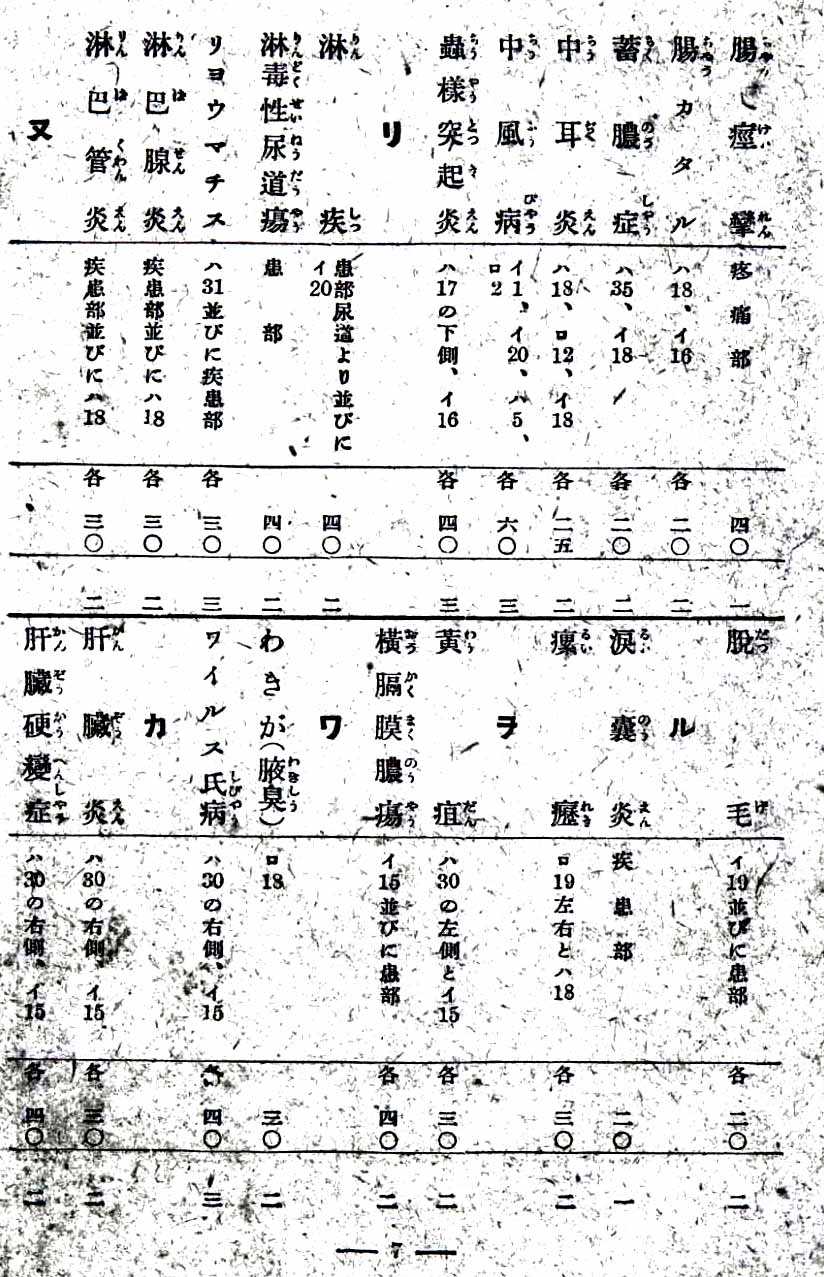 腸痙攣 疼痛部 四〇 一
腸カタル ハ18、イ16 各二〇 二
蓄膿症 ハ35、イ18 各二〇 二
中耳炎 ハ18、ロ12、イ18 各二五 二
中風病 イ1、イ20、ハ5、ロ2 各六〇 三
蟲様突起炎 ハ17の下側、イ16 各四〇 三
リ
淋疾 患部尿道より並びにイ20 四〇 二
淋毒性尿道瘍 患部 四〇 二
リヨウマチス ハ31並びに疾患部 各三〇 三
淋巴腺炎 疾患部並びにハ18 各三〇 二
淋巴管炎 疾患部並びにハ18 各三〇 二
ヌ
脫毛 イ19並びに患部 各二〇 二
ル
淚囊炎 疾患部 二〇 一
瘰癧 ロ19左右とハ18 各三〇 二
ヲ
黃疸 ハ30の左側とイ15 各三〇 二
橫膈膜膿瘍 イ15並びに患部 各四〇 二
ワ
わきが(腋臭) ロ18 三〇 二
ワイルス氏病 ハ30の右側、イ15 各四〇 三
カ
肝臟炎 ハ30の右側、イ15 各三〇 二
肝臟硬變症 ハ30の右側、イ15 各四〇 二
7